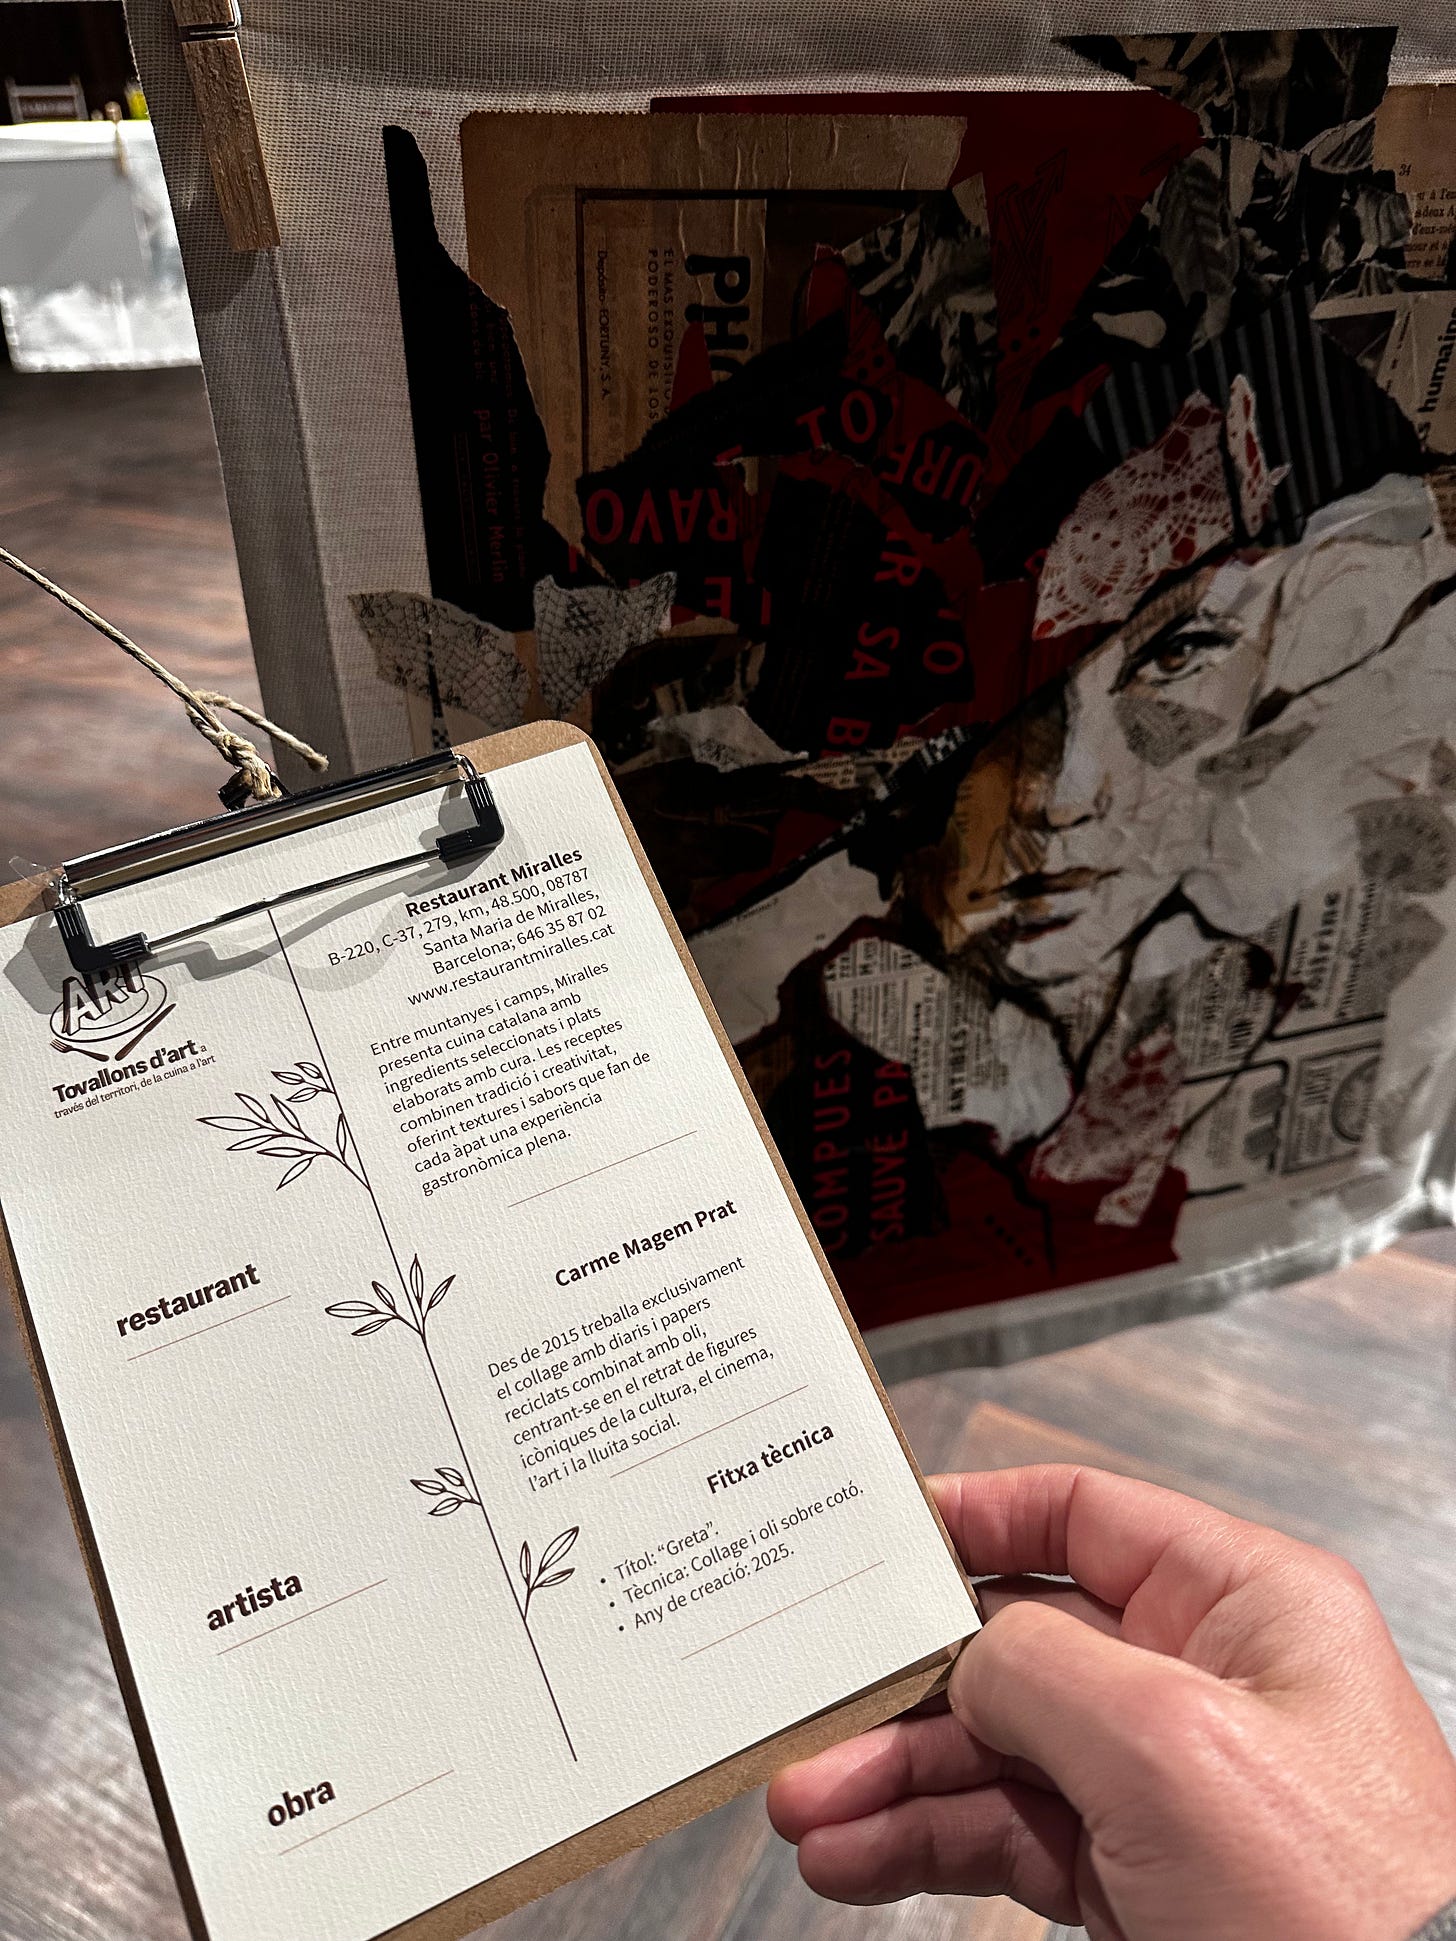 ART
Tovallons d'art a
través del territori, de la cuina a l'art
Restaurant Miralles
B-220, C-37, 279, km, 48.500, 08787
Santa Maria de Miralles,
Barcelona; 646 35 87 02
www.restaurantmiralles.cat
Entre muntanyes i camps, Miralles
presenta cuina catalana amb
ingredients seleccionats i plats
elaborats amb cura. Les receptes
combinen tradició i creativitat,
oferint textures i sabors que fan de
cada àpat una experiència
gastronòmica plena.
restaurant
Carme Magem Prat
Des de 2015 treballa exclusivament
el collage amb diaris i papers
reciclats combinat amb oli,
centrant-se en el retrat de figures
icòniques de la cultura, el cinema,
l'art i la lluita social.
artista
Fitxa tècnica
• Títol: “Greta”.
• Tècnica: Collage i oli sobre cotó.
• Any de creació: 2025.
obra
PHO
EL MAS EXQUISITO
PODEROSO DE LOS
Depósito FORTUNY, S. A.
par Olivier Merlin
RAVO
URFO
IR SA B
COMPUES
SAUVÉ PA
ANTIBES
Poitrine
humain
34